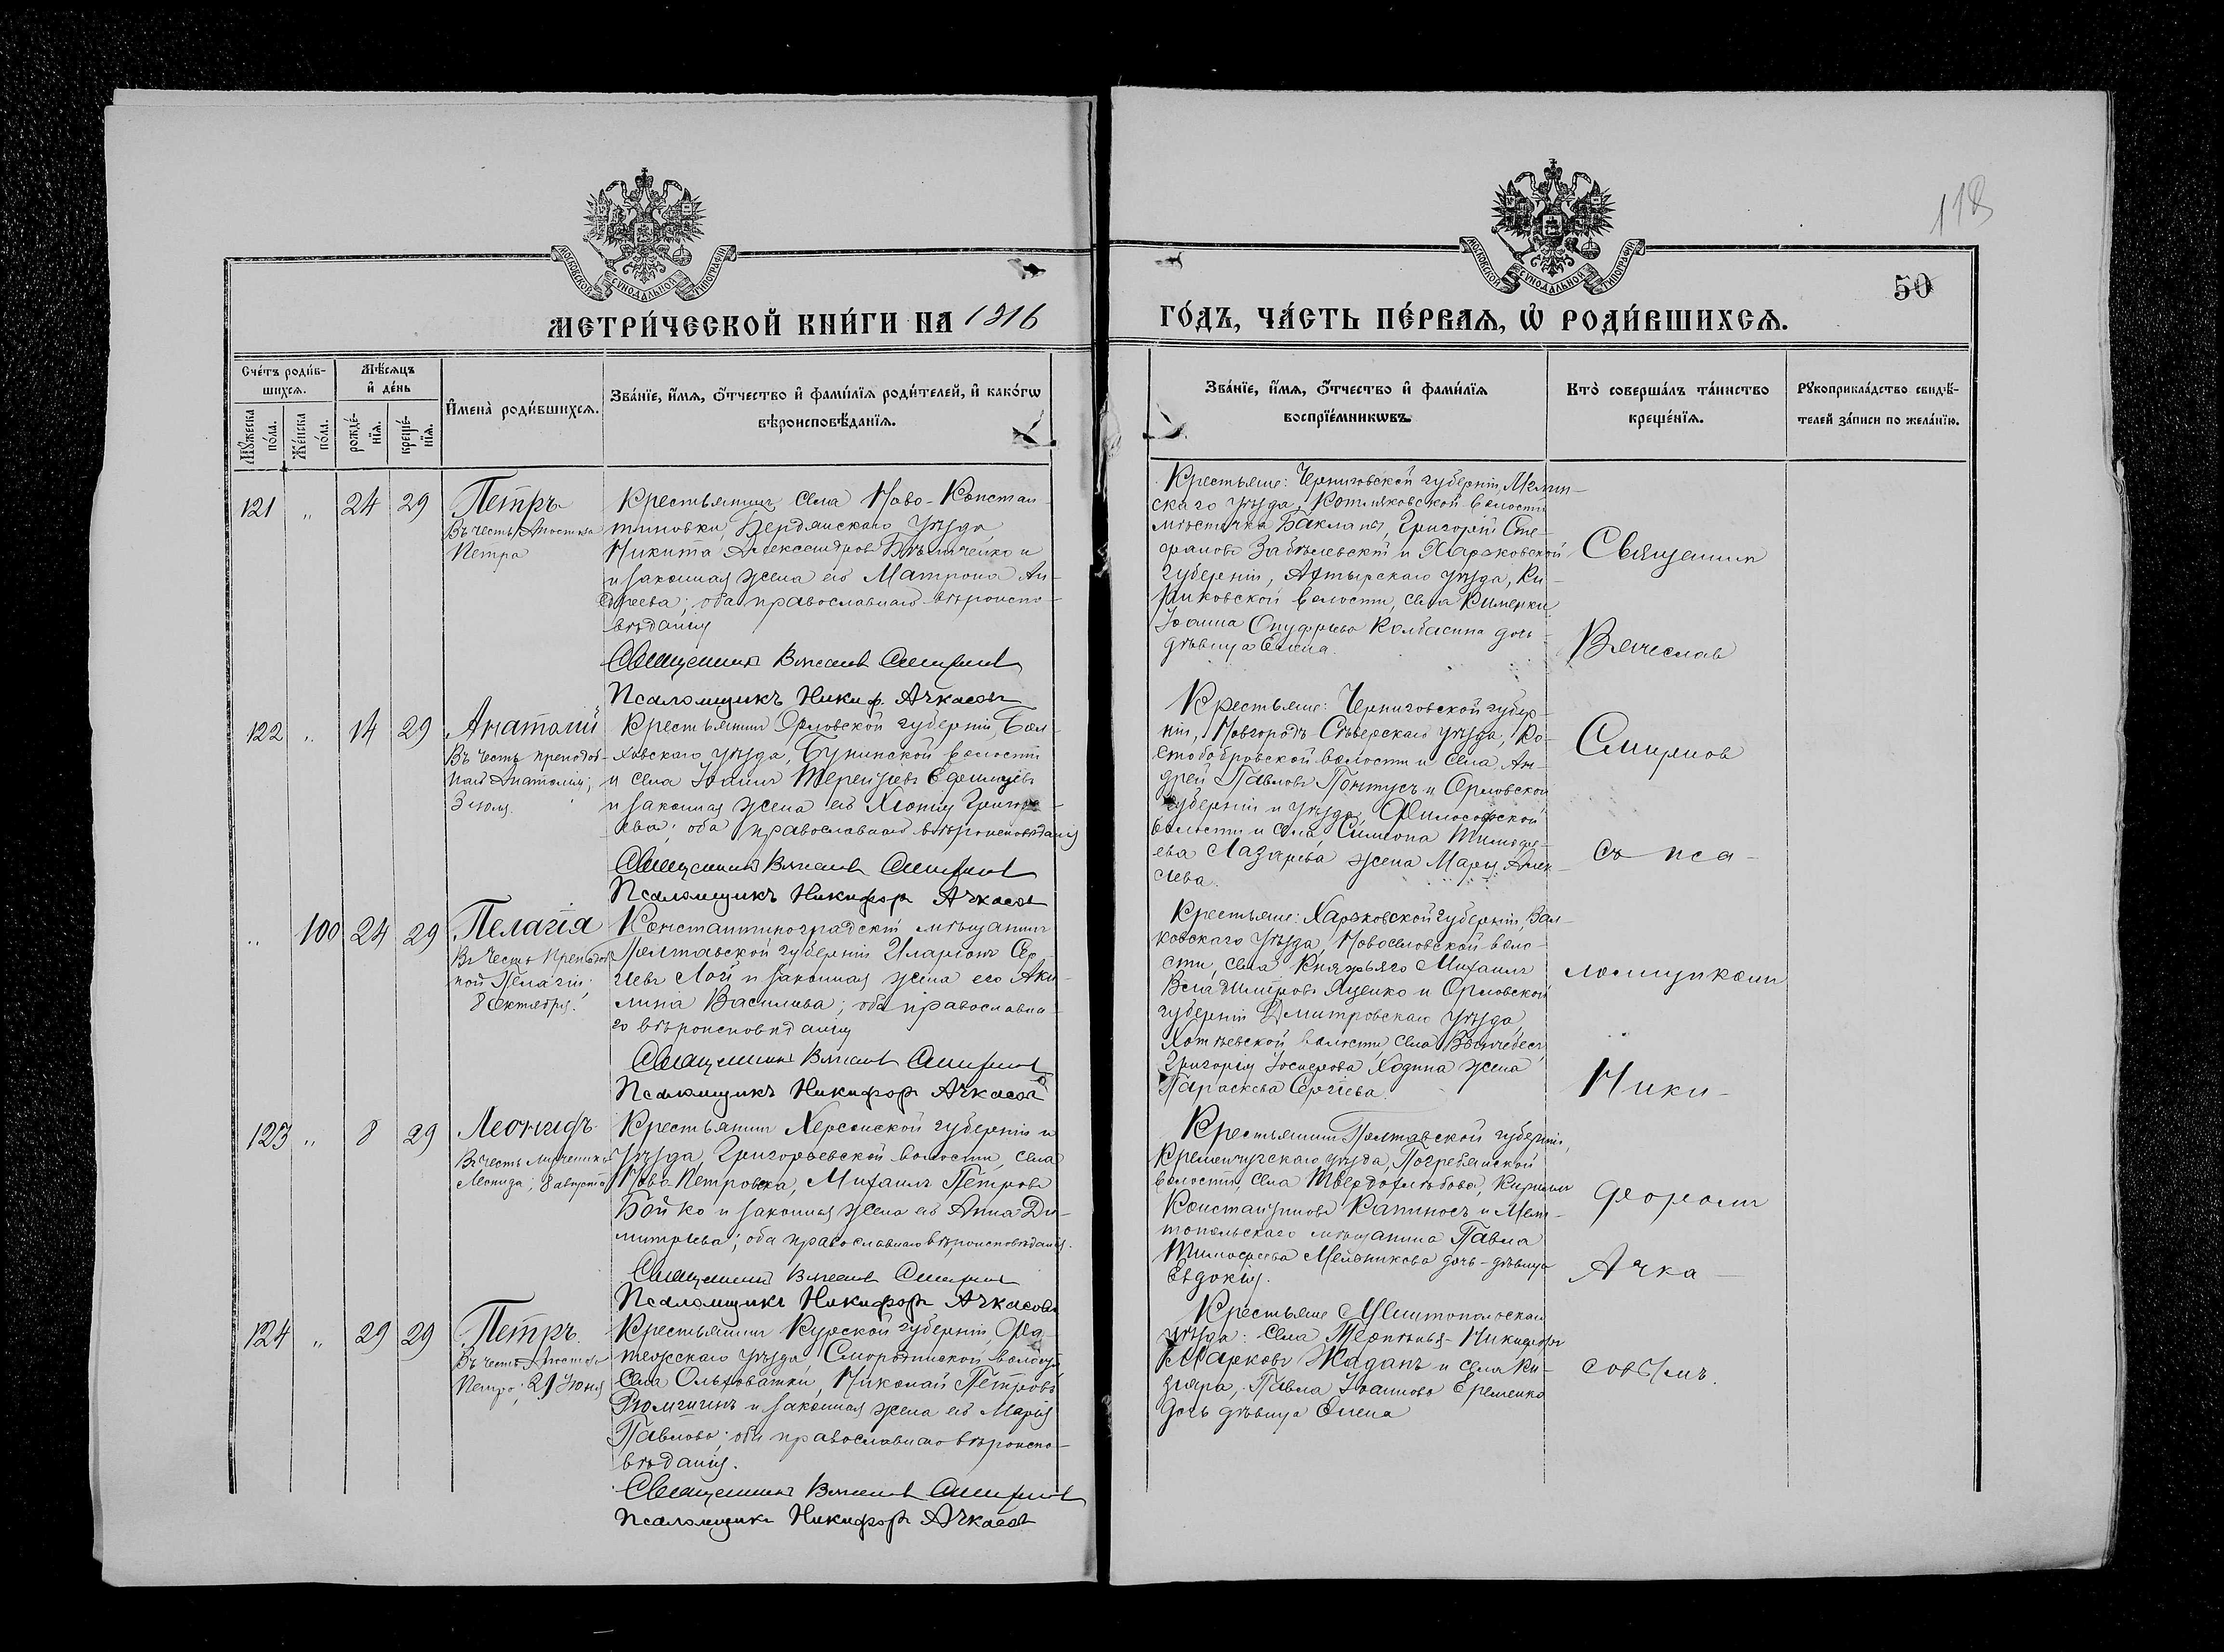 118
50
МОСКОВСКОЙ СѴНОДАЛЬНОЙ ТИПОГРАФІИ
МОСКОВСКОЙ СѴНОДАЛЬНОЙ ТИПОГРАФІИ
МЕТРИ́ЧЕСКОЙ КНИ́ГИ НА 1916
ГО́ДЪ, ЧА́СТЬ ПЕ́РВАѦ, Ѡ҆ РОДИ́ВШИХСѦ.
Сче́тъ роди́в-
шихсѧ.
Мѣ́сѧцъ
и҆ де́нь
Мꙋ́жеска
по́ла.
Же́нска
по́ла.
рожде́-
нїѧ.
креще́-
нїѧ.
И҆мена̀ роди́вшихсѧ.
Зва́нїе, и҆́мѧ, ѻ҆́тчество и҆ фами́лїѧ роди́телей, и҆ како́гѡ
вѣроисповѣ́данїѧ.
Зва́нїе, и҆́мѧ, ѻ҆́тчество и҆ фами́лїѧ
воспрїе́мникѡвъ.
Кто̀ соверша́лъ та́инство
креще́нїѧ.
Рꙋкоприкла́дство свидѣ́-
телей за́писи по жела́нїю.
121 „ 24 29
Петръ
Въ честь Апостола
Петра
Крестьянинъ села Ново-Констан-
тиновки, Бердянскаго уѣзда
Никита Александровъ и
и законная жена его Матрона Ан-
дреева; оба православнаго вѣроиспо-
вѣданія
Священникъ Вячеславъ Смирновъ
Псаломщикъ Никиф. Ачкасовъ
Крестьяне: Черниговской губерніи, Мглин-
скаго уѣзда, волости
мѣстечка Бакланъ, Григорій Сте-
фановъ и Харьковской
губерніи, Ахтырскаго уѣзда, Ки-
риковской волости, села
Іоанна Онуфріева Колбасина дочь
дѣвица Елена.
122 „ 14 29
Анатолій
Въ честь преподоб-
наго Анатолія;
3 іюля.
Крестьянинъ Орловской губерніи, Бол-
ховскаго уѣзда, Бунинской волости
и села Іоаннъ Терентьевъ
и законная жена его Хіонія Григорь-
ева; оба православнаго вѣроисповѣданія
Священникъ Вячеславъ Смирновъ
Псаломщикъ Никифоръ Ачкасовъ
Крестьяне: Черниговской губер-
ніи, Новгородъ Сѣверскаго уѣзда, Ко-
стобобровской волости и села, Ан-
дрей Павловъ Понтусъ и Орловской
губерніи и уѣзда, Философской
волости и села, Симеона Тимофе-
ева Лазарева жена Марія Алек-
сѣева.
„ 100 24 29
Пелагія
Въ честь преподоб-
ной Пелагіи;
8 октября.
Константиноградскій мѣщанинъ
Полтавской губерніи Иларіонъ Сер-
гіевъ Лой и законная жена его Аки-
лина Васильева; оба православна-
го вѣроисповѣданія
Священникъ Вячеславъ Смирновъ
Псаломщикъ Никифоръ Ачкасовъ
Крестьяне: Харьковской губерніи, Вал-
ковскаго уѣзда, Новоселовской воло-
сти, села Княжьяго Михаилъ
Владиміровъ Яценко и Орловской
губерніи Дмитровскаго уѣзда,
волости, села
Григорія Іосифова Ходина жена
Параскева Сергіева.
123 „ 8 29
Леонидъ
Въ честь мученика
Леонида; 8 августа
Крестьянинъ Херсонской губерніи и
уѣзда, Григорьевской волости, села
Ново Петровка, Михаилъ Петровъ
Бойко и законная жена его Анна Ди-
митріева; оба православнаго вѣроисповѣданія.
Священникъ Вячеславъ Смирновъ
Псаломщикъ Никифоръ Ачкасовъ
Крестьянинъ Полтавской губерніи,
Кременчугскаго уѣзда, Погребянской
волости, села Твердохлѣбова, Кириллъ
Константиновъ Капиносъ и Мели-
топольскаго мѣщанина Павла
Тимофеева Мельникова дочь-дѣвица
Евдокія.
124 „ 29 29
Петръ
Въ честь Апостола
Петра; 29 Іюня
Крестьянинъ Курской губерніи, Фа-
тежскаго уѣзда, Смородинской волости
села Ольховатки, Николай Петровъ
и законная жена его Марія
Павлова; оба православнаго вѣроиспо-
вѣданія.
Священникъ Вячеславъ Смирновъ
Псаломщикъ Никифоръ Ачкасовъ
Крестьяне Мелитопольскаго
уѣзда: села Терпѣнья-Никифоръ
Марковъ Жаданъ и села Ки-
зіяра, Павла Іоаннова Еременко
дочь дѣвица Елена
Священникъ
Вячеславъ
Смирновъ
съ пса-
ломщикомъ
Ники-
форомъ
Ачка-
совымъ.